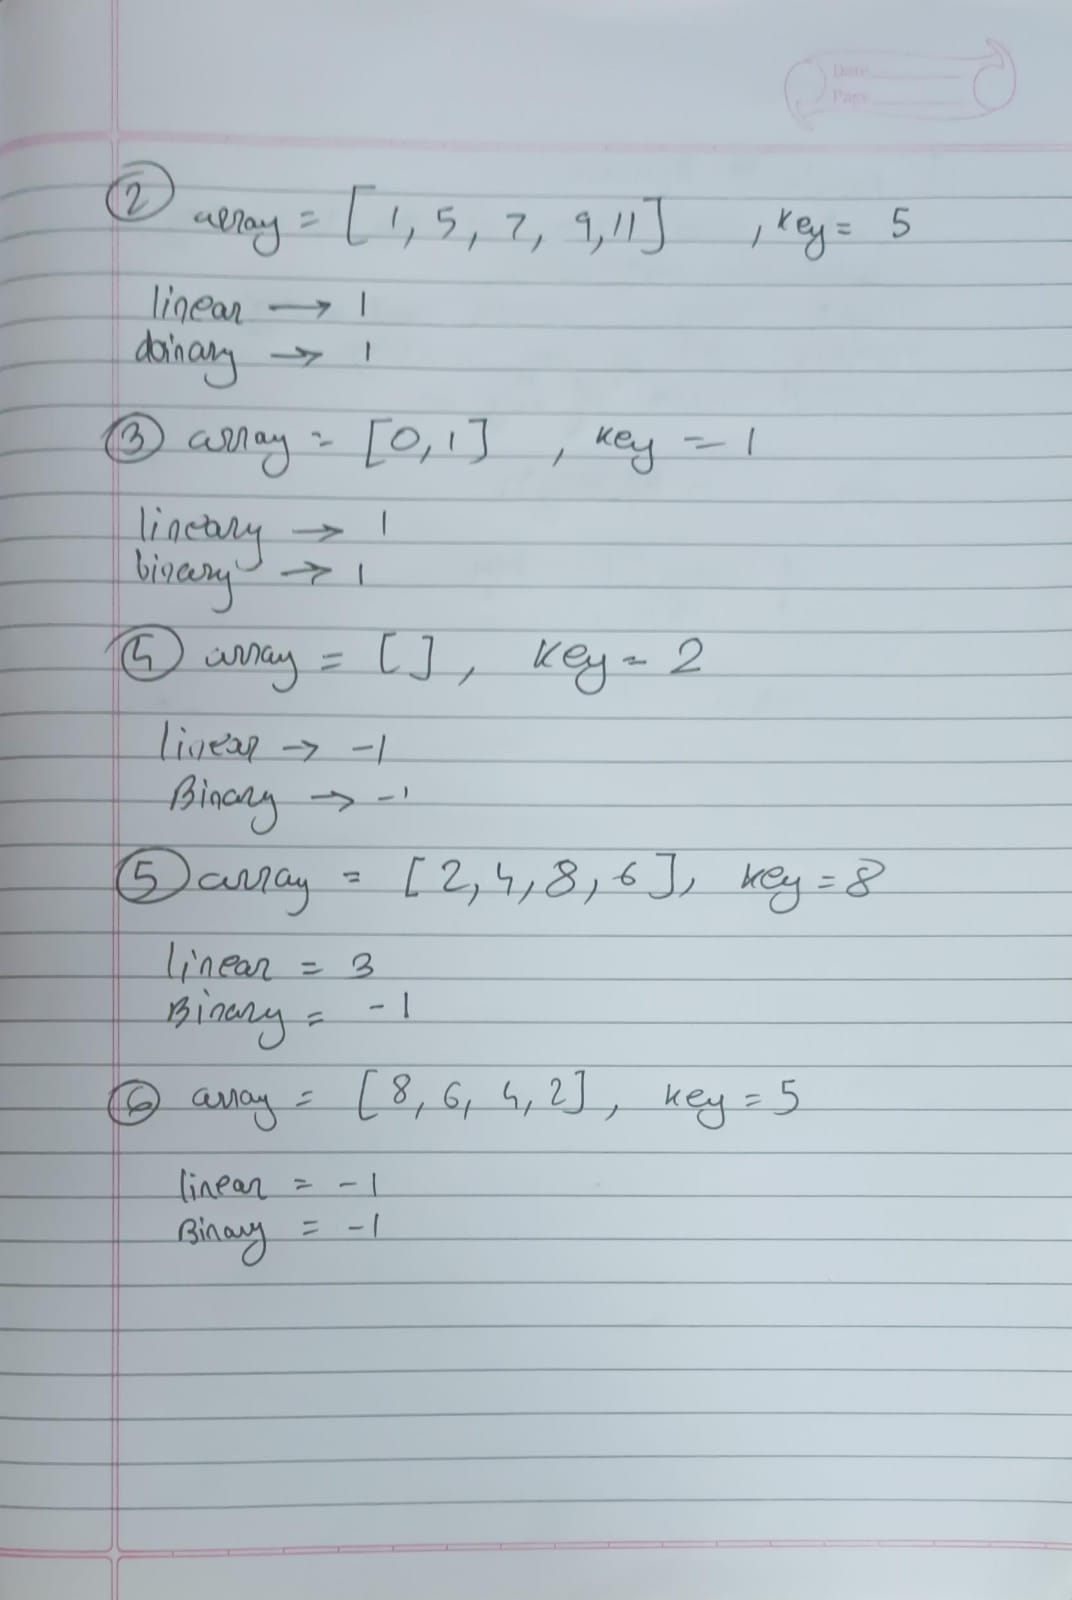 Date
Page
② array = [1, 5, 7, 9, 11] , key = 5
linear → 1
binary → 1
③ array = [0, 1] , key = 1
lineary → 1
binary → 1
④ array = [ ], key = 2
linear → -1
Binary → -1
⑤ array = [2, 4, 8, 6], key = 8
linear = 3
Binary = -1
⑥ array = [8, 6, 4, 2], key = 5
linear = -1
Binary = -1